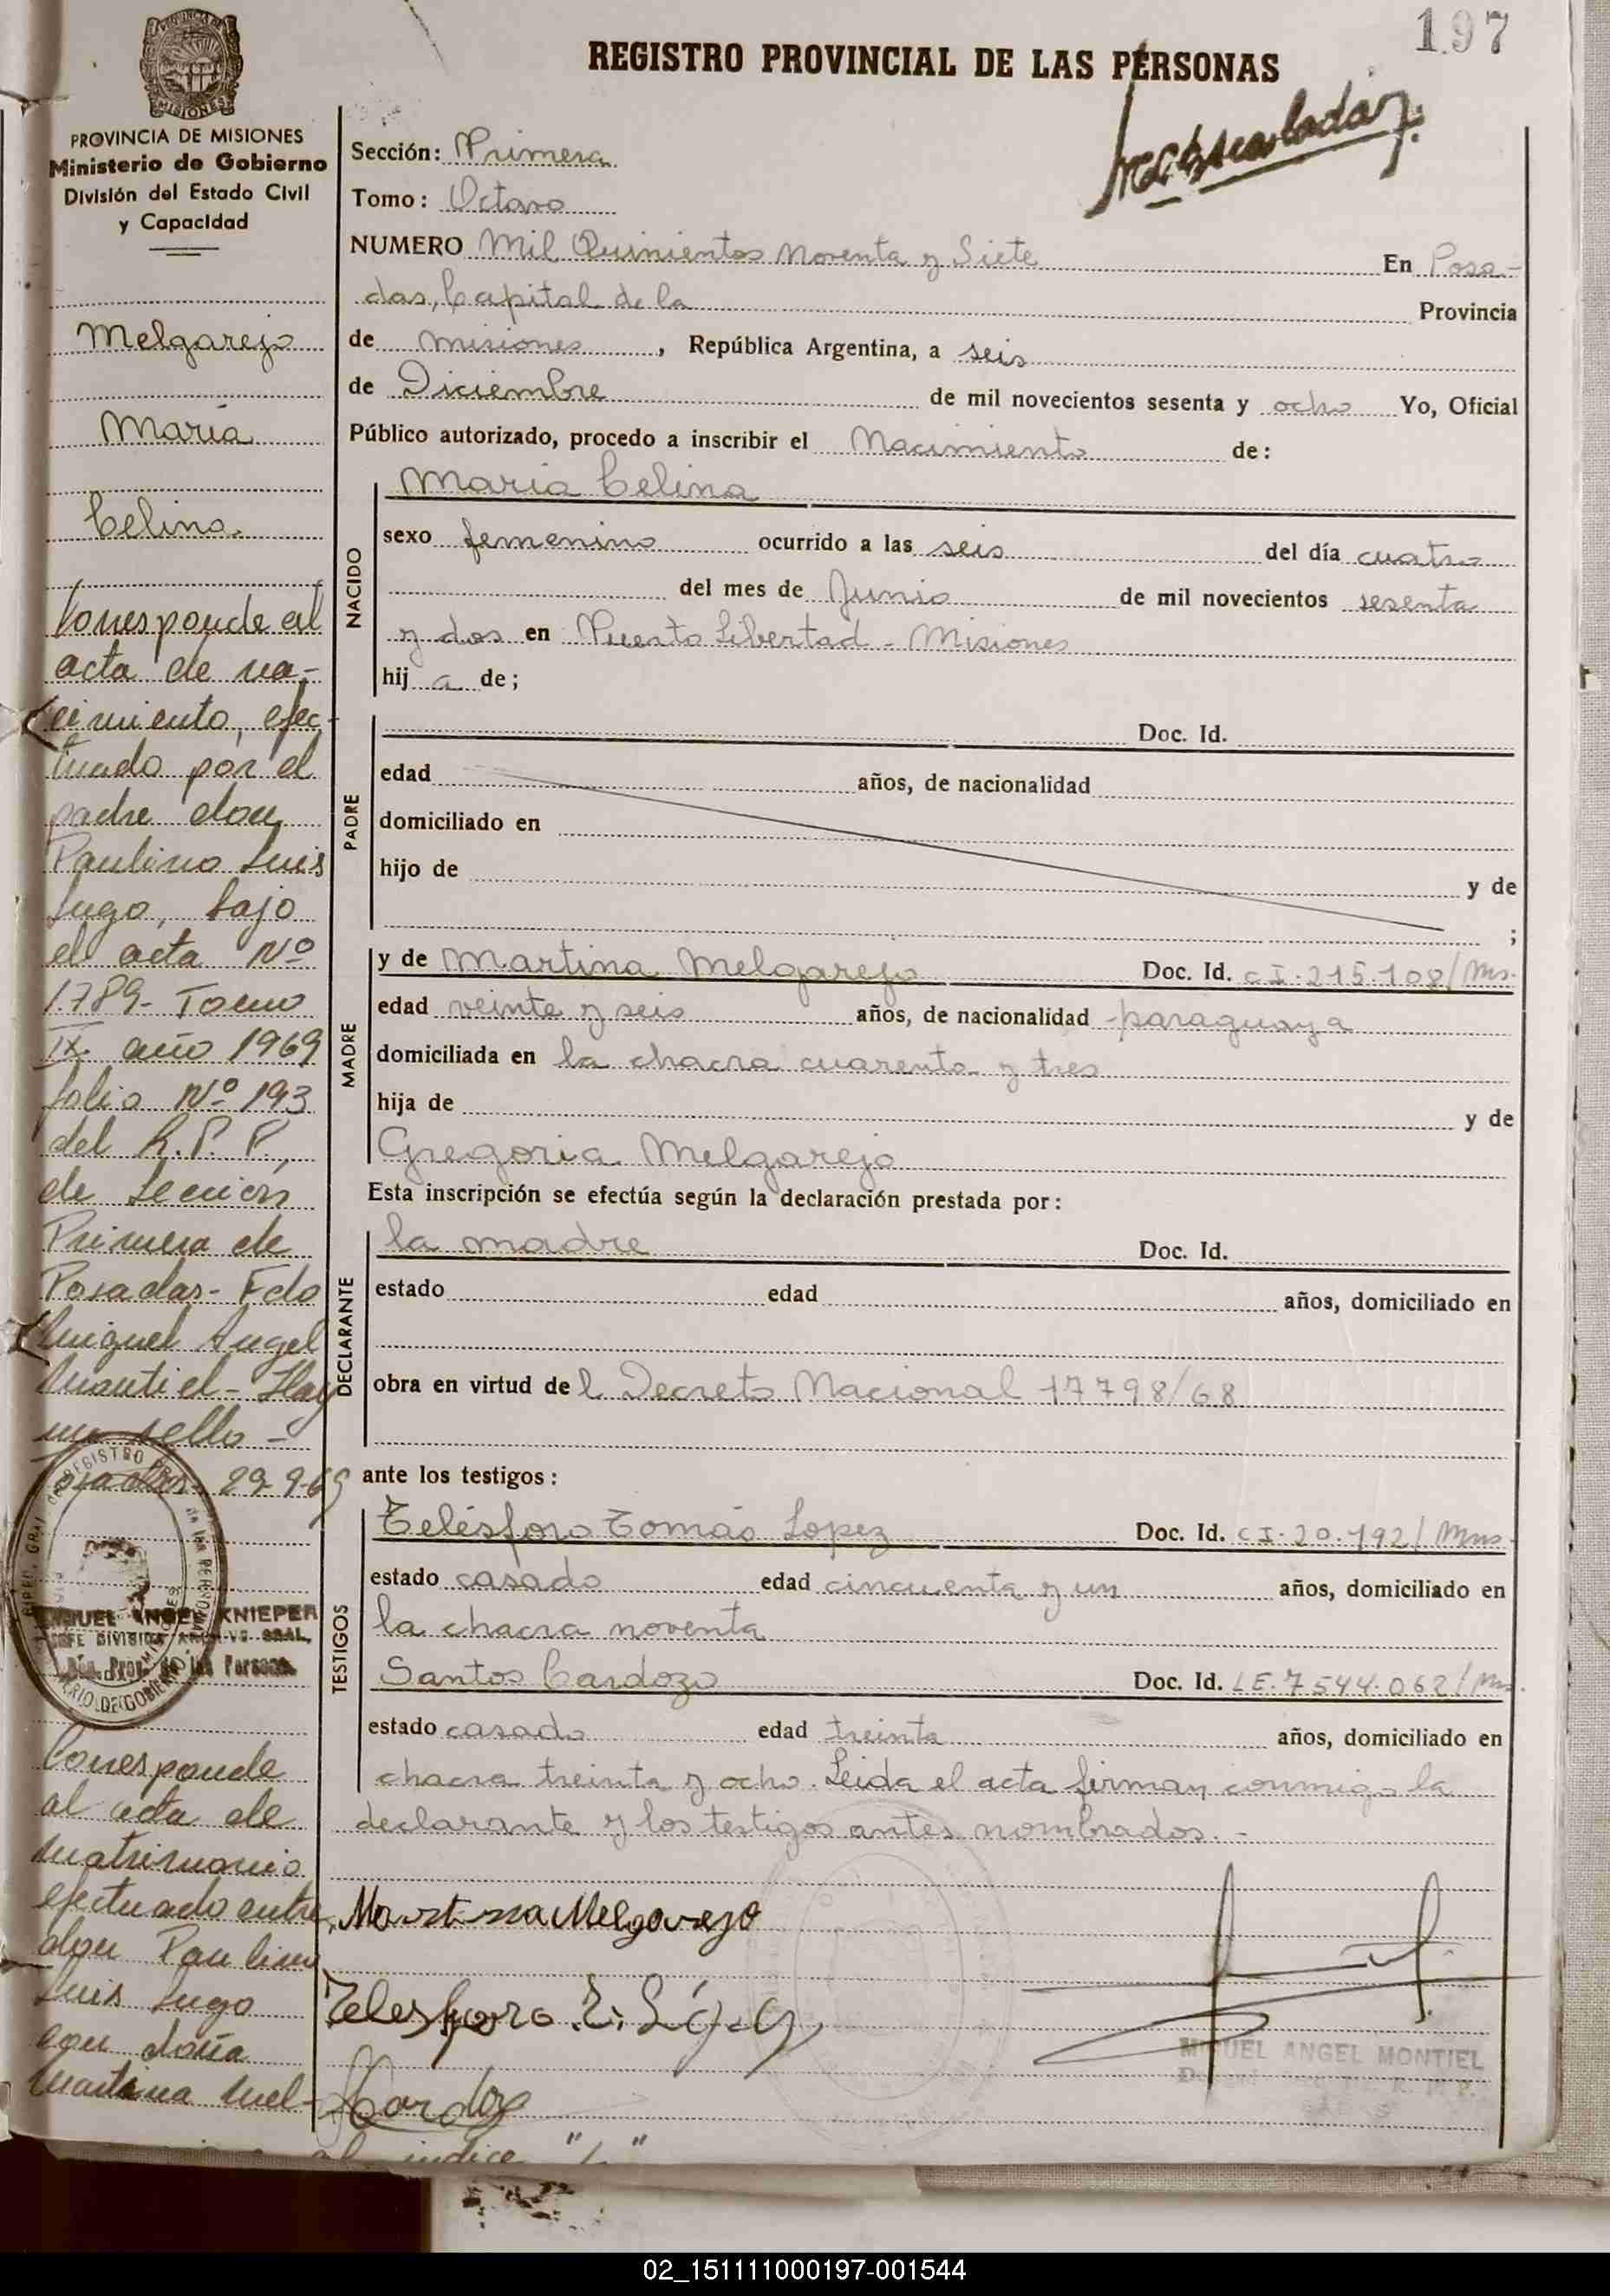 197
REGISTRO PROVINCIAL DE LAS PERSONAS
PROVINCIA DE MISIONES
Ministerio de Gobierno
División del Estado Civil
y Capacidad
Melgarejo
Maria
Celina
Corresponde al
acta de na-
cimiento, efec-
tuado por el
padre don
Paulino Luis
Lugo, bajo
el acta Nº
1.789- Tomo
IX año 1969
folio Nº 193
del R.P.P,
de Sección
Primera de
Posadas- Fdo
Miguel Angel
Montiel- Hay
un sello -
Posadas 29-9-69
MIGUEL ANGEL KNIEPER
JEFE DIVISION ARCHIVO GRAL.
Dir. Prov. de las Personas
Corresponde
al acta de
matrimonio
efectuado entre
don Paulino
Luis Lugo
con doña
Martina Mel-
al indice "L"
Sección: Primera
Tomo: Octavo
NUMERO Mil Quinientos Noventa y Siete En Posa-
das, Capital de la Provincia
de Misiones, República Argentina, a seis
de Diciembre de mil novecientos sesenta y ocho Yo, Oficial
Público autorizado, procedo a inscribir el Nacimiento de:
NACIDO
Maria Celina
sexo femenino ocurrido a las seis del día cuatro
del mes de Junio de mil novecientos sesenta
y dos en Puerto Libertad - Misiones
hij a de;
PADRE
Doc. Id.
edad años, de nacionalidad
domiciliado en
hijo de y de
;
MADRE
y de Martina Melgarejo Doc. Id. CI.215.108/Mns.
edad veinte y seis años, de nacionalidad paraguaya
domiciliada en la chacra cuarenta y tres
hija de y de
Gregoria Melgarejo
Esta inscripción se efectúa según la declaración prestada por:
DECLARANTE
la madre Doc. Id.
estado edad años, domiciliado en
obra en virtud del Decreto Nacional 17798/68
ante los testigos:
TESTIGOS
Telésforo Tomás Lopez Doc. Id. CI.20.192/Mns.
estado casado edad cincuenta y un años, domiciliado en
la chacra noventa
Santos Cardozo Doc. Id. LE.7544.062/Mns.
estado casado edad treinta años, domiciliado en
chacra treinta y ocho. Leida el acta firman conmigo la
declarante y los testigos antes nombrados. -
Martina Melgarejo
Telesforo T. López
SCardozo
MIGUEL ANGEL MONTIEL
02_151111000197-001544